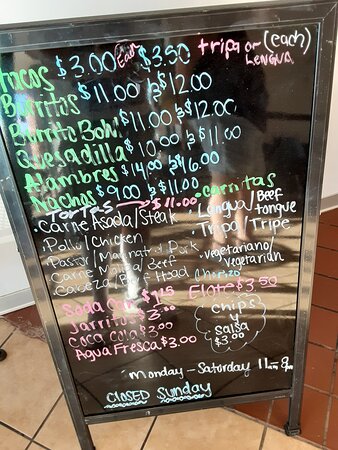 Tacos $3.00 Each $3.50 tripa or LENGUA (each)
Burritos $11.00 $12.00
Burrito Bowl $11.00 $12.00
Quesadilla $10.00 $11.00
Alambres $14.00 $16.00
Nachos $9.00 $11.00
Tortas $11.00
• carnitas
• Carne Asada/Steak
• Lengua/Beef tongue
Pollo/Chicken
• Tripa/Tripe
Pastor/Marinated Pork
• vegetariano/vegetarian
Carne Molida/Beef
Cabeza/Beef Head
Chorizo
Soda Can
Elote $3.50
Jarritos
Coca Cola
chips
y
salsa
$3.00
Agua Fresca $3.00
Monday – Saturday
CLOSED Sunday